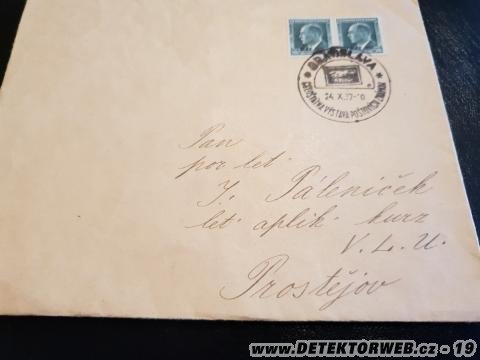 BRATISLAVA
24.X.37-16
CELOŠTÁTNA VÝSTAVA POŠTOVÝCH ZNÁMOK
Pan
por. let.
J. Páleníček
let. aplik. kurz
V. L. U.
Prostějov
www.DETEKTORWEB.cz - 19